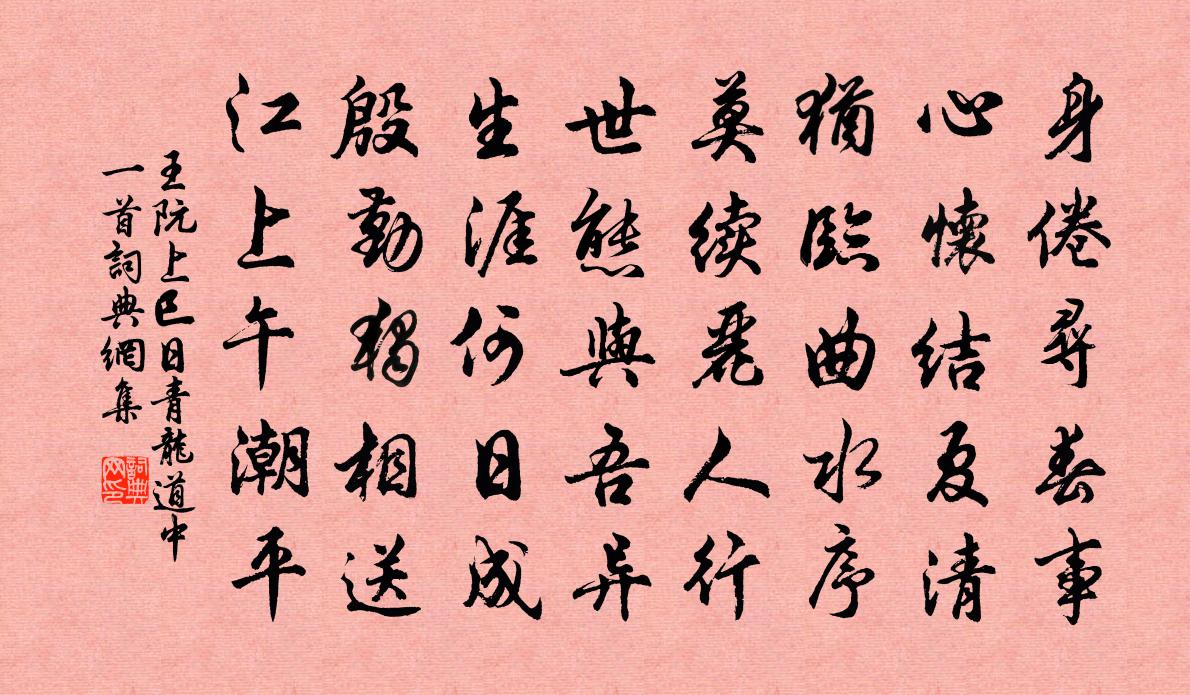 身倦尋春事
心懷結夏清
猶臨曲水序
莫續麗人行
世態與吾异
生涯何日成
殷勤獨相送
江上午潮平
王阮上巳日青龍道中
一首詞典網集
詞典
网印